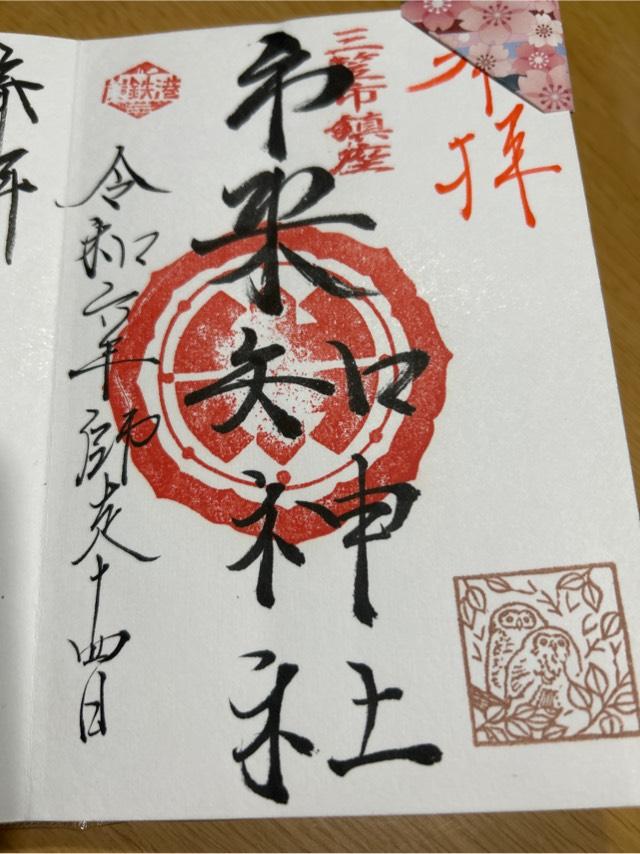 奉拝
三笠市鎮座
市来知神社
炭鉄港
令和六年師走十四日